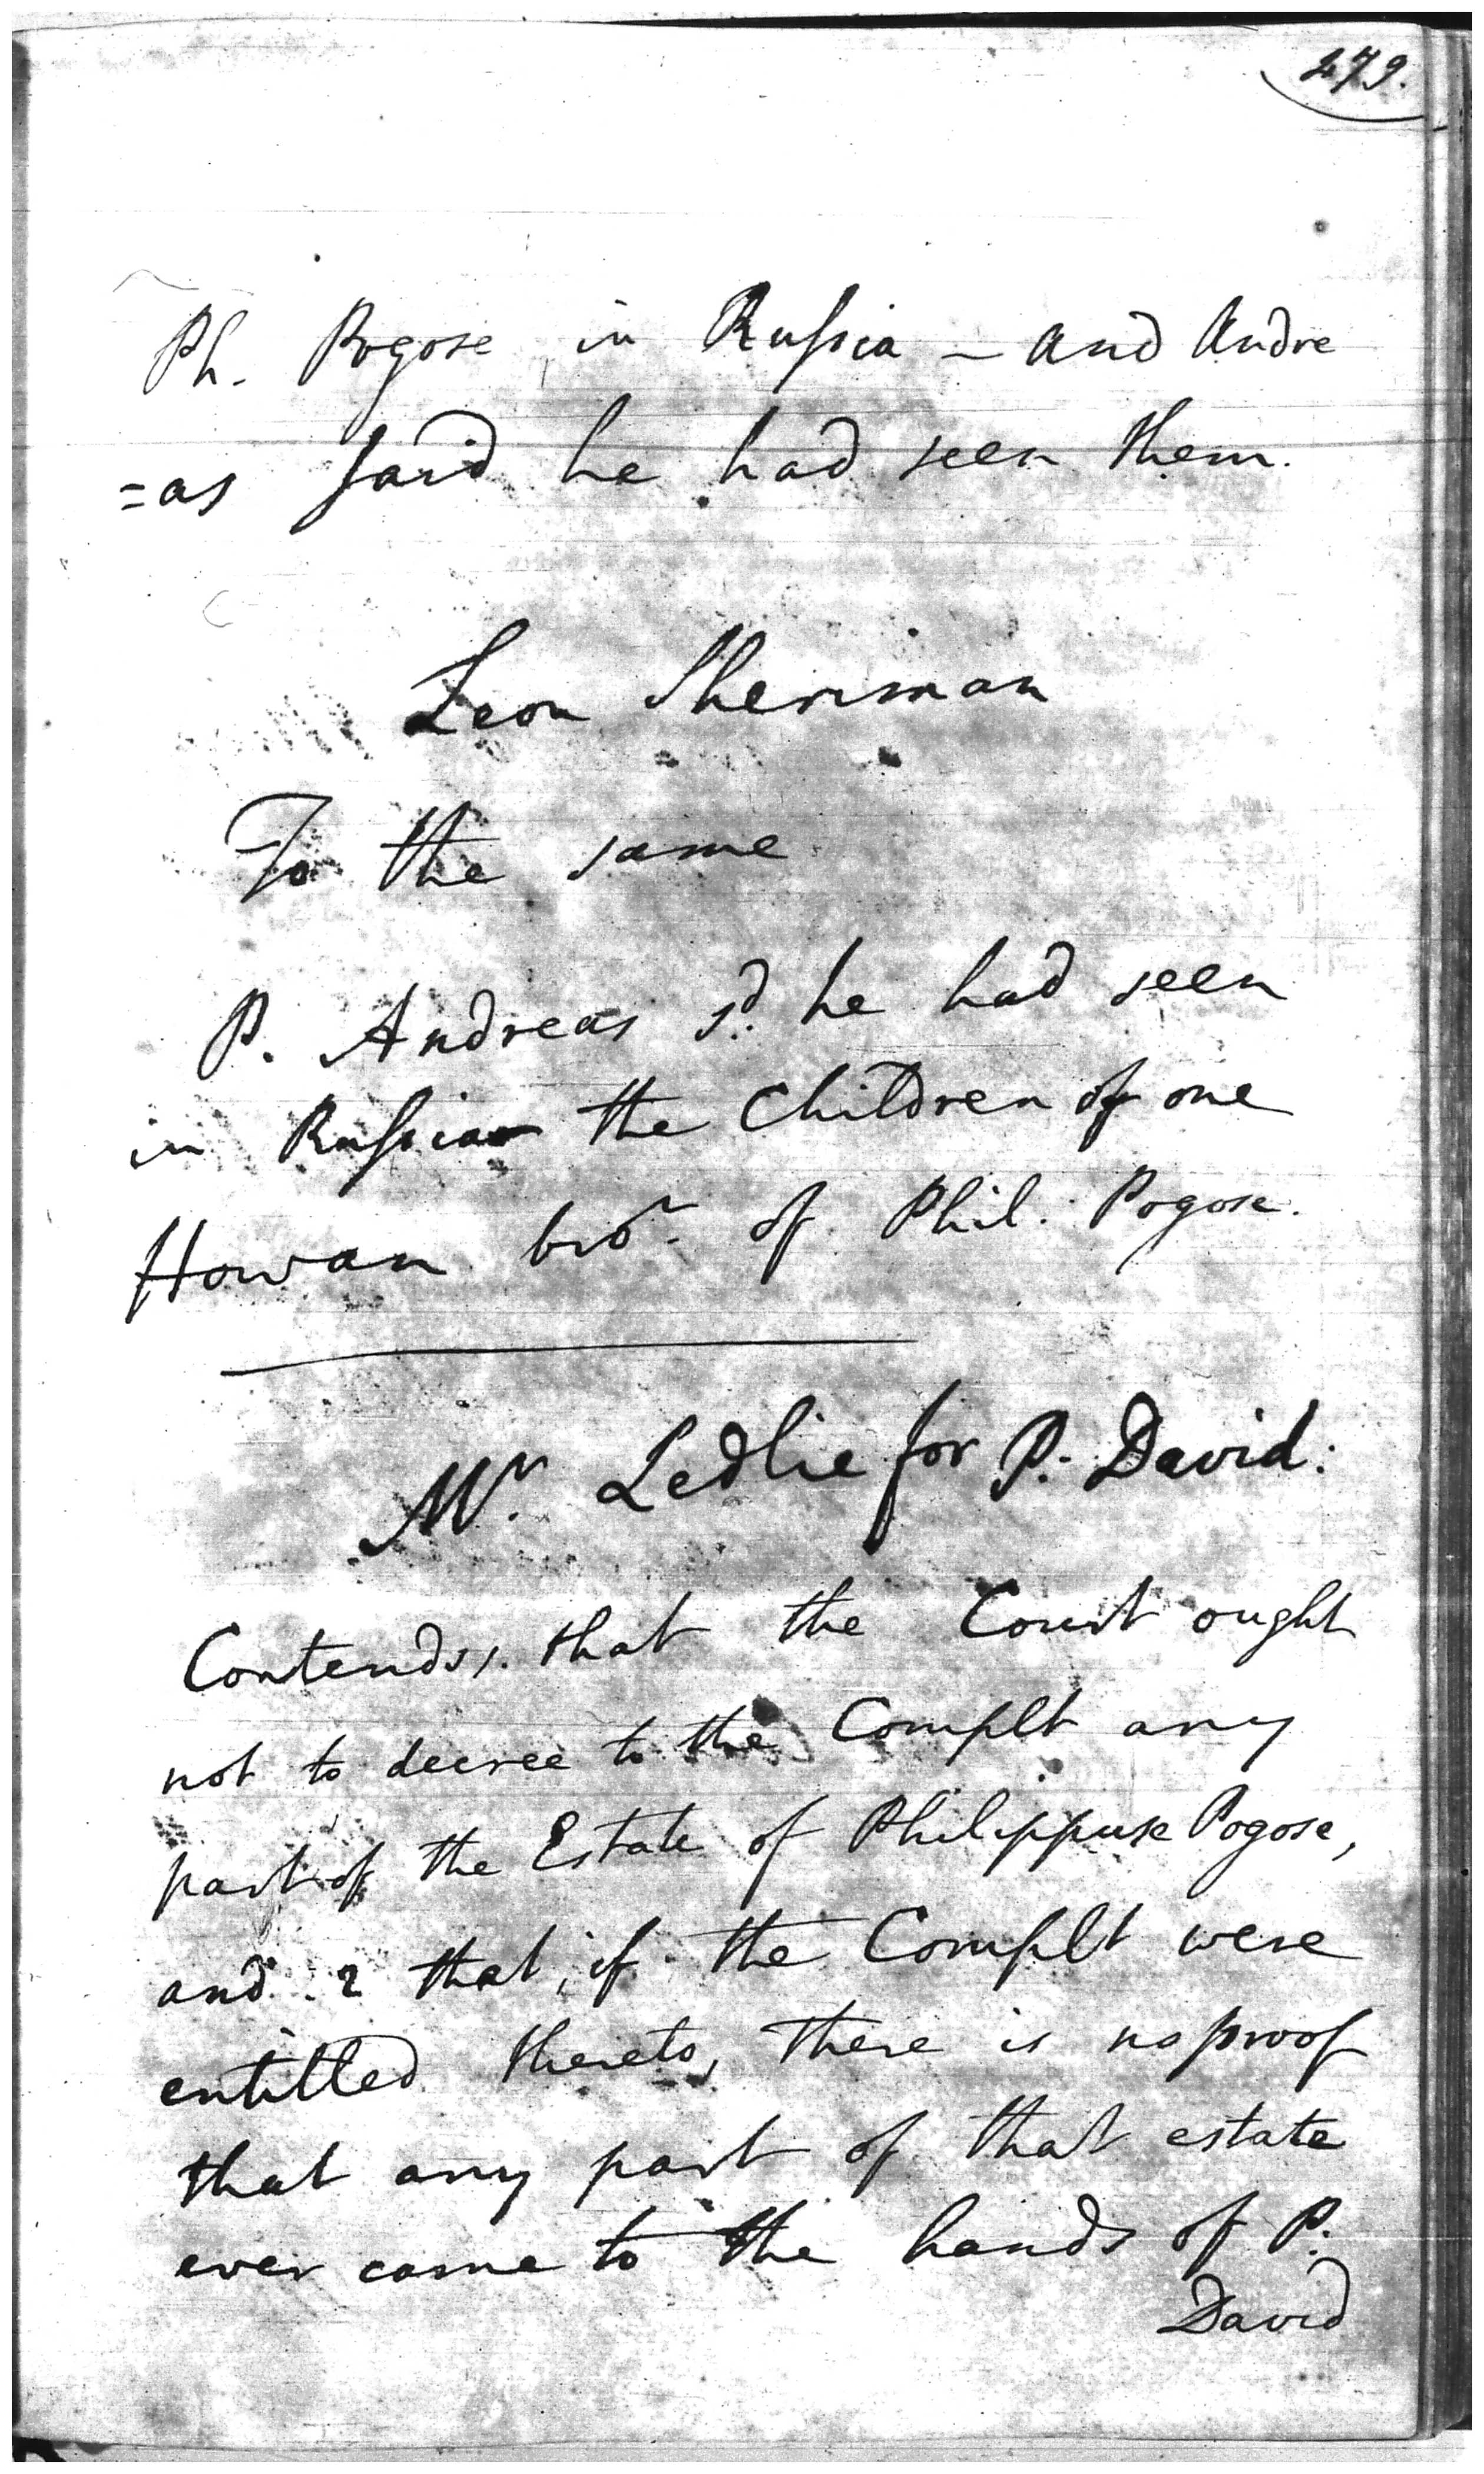 279.
Ph. Pogose in Russia – and Andre
=as said he had seen them.
Leon Sheriman
To the same
P. Andreas sd. he had seen
in Russia the Children of one
Howan bror. of Phil. Pogose.
Mr. Ledlie for P. David:
Contends 1. that the Court ought
not to decree to the Complt any
part of the Estate of Philippuse Pogose,
and 2 that, if the Complt were
entitled thereto, there is no proof
that any part of that estate
ever came to the hands of P.
David